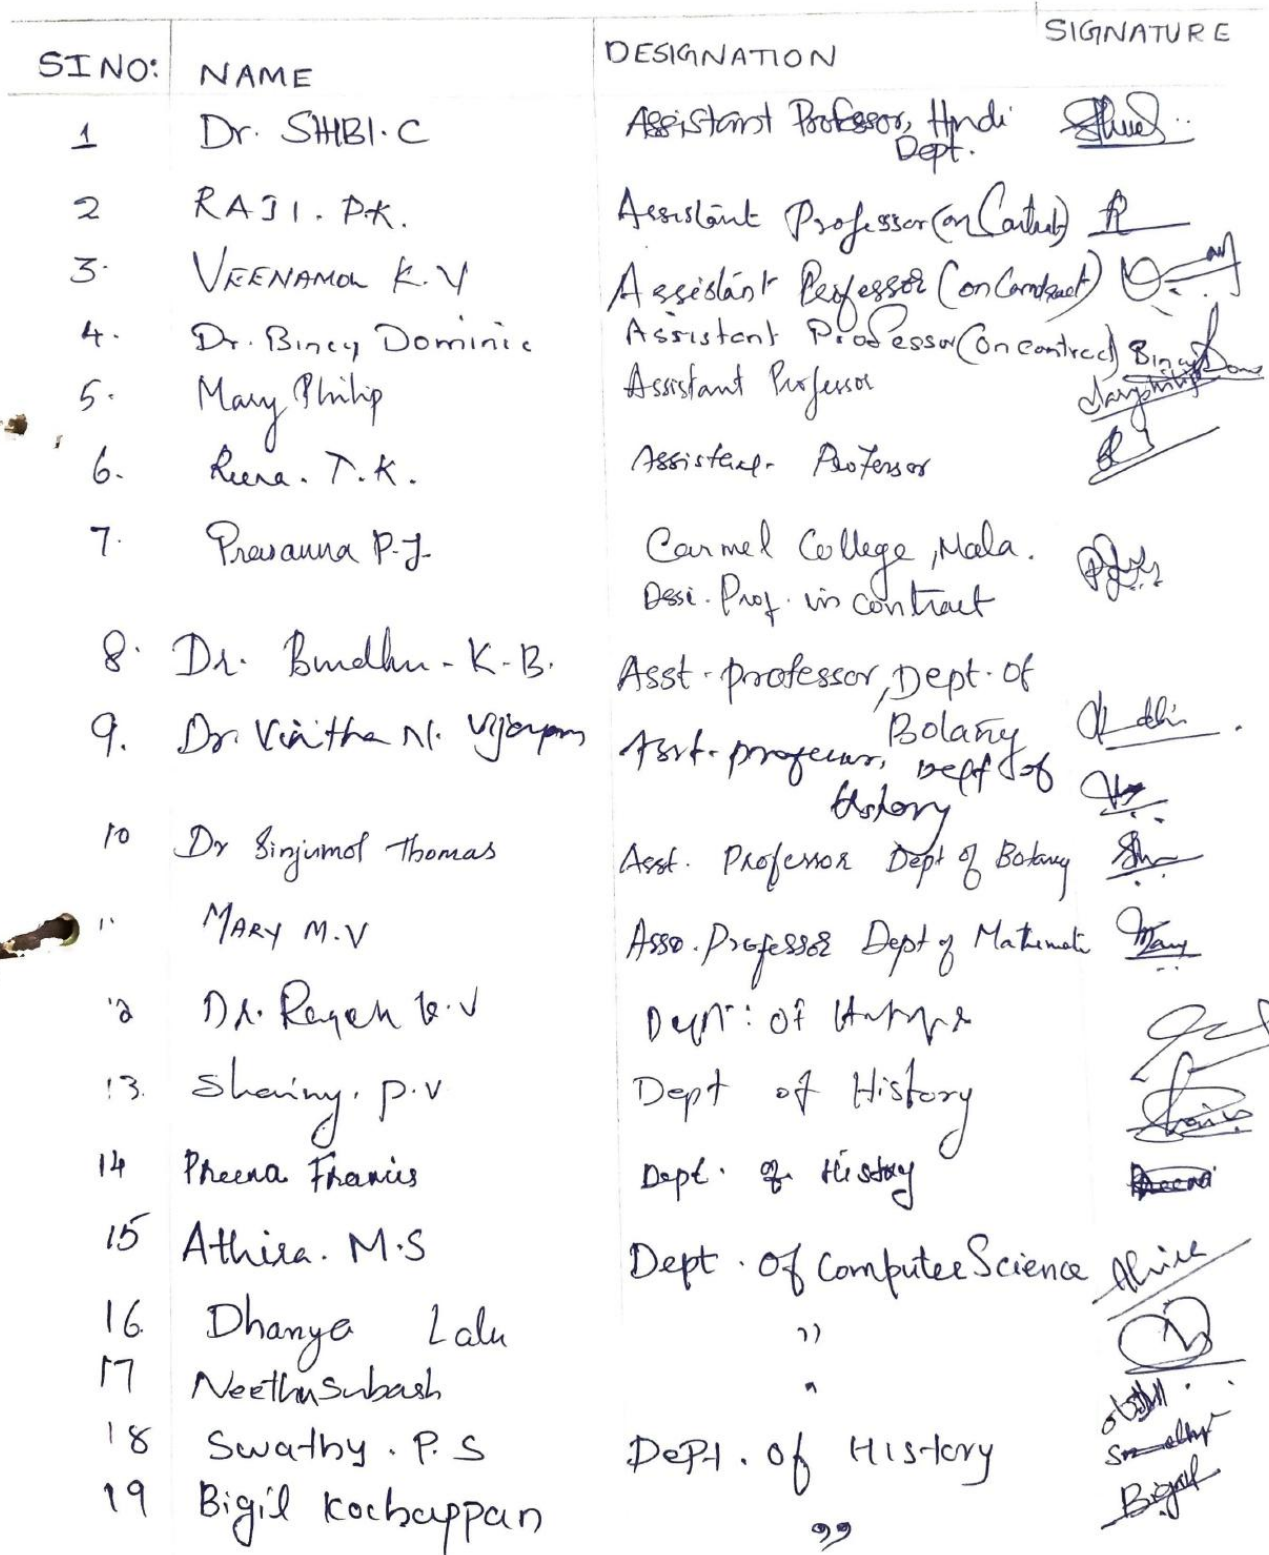 SI NO: NAME DESIGNATION SIGNATURE
1 Dr. SHIBI. C Assistant Professor, Hindi
Dept.
2 RAJI. P.K. Assistant Professor (on Contract)
3. VEENAMOL K.V Assistant Professor (on Contract)
4. Dr. Bincy Dominic Assistant Professor (On contract) Bincy Dom
5. Mary Philip Assistant Professor Maryphilip
6. Reena. T.K. Assistant Professor
7. Prasanna P.J. Carmel College, Mala.
Assi. Prof. in contract
8. Dr. Bindhu - K-B. Asst-professor, Dept. of
Botany
9. Dr. Vinitha N. Asst-professor, Dept of
History
10 Dr Sinjumol Thomas Asst. Professor Dept of Botany
11 MARY M.V Asso. Professor Dept of Mathemati Mary
12 Dr. K.V Dept: of
13. Shainy. P.V Dept of History
14 Preena Francis Dept. of History Preena
15 Athira. M.S Dept. of Computer Science Athira
16. Dhanya Lalu ''
17 Neethu Subash "
18 Swathy. P.S Dept. of History Swathy
19 Bigil Kochappan ,, Bigil